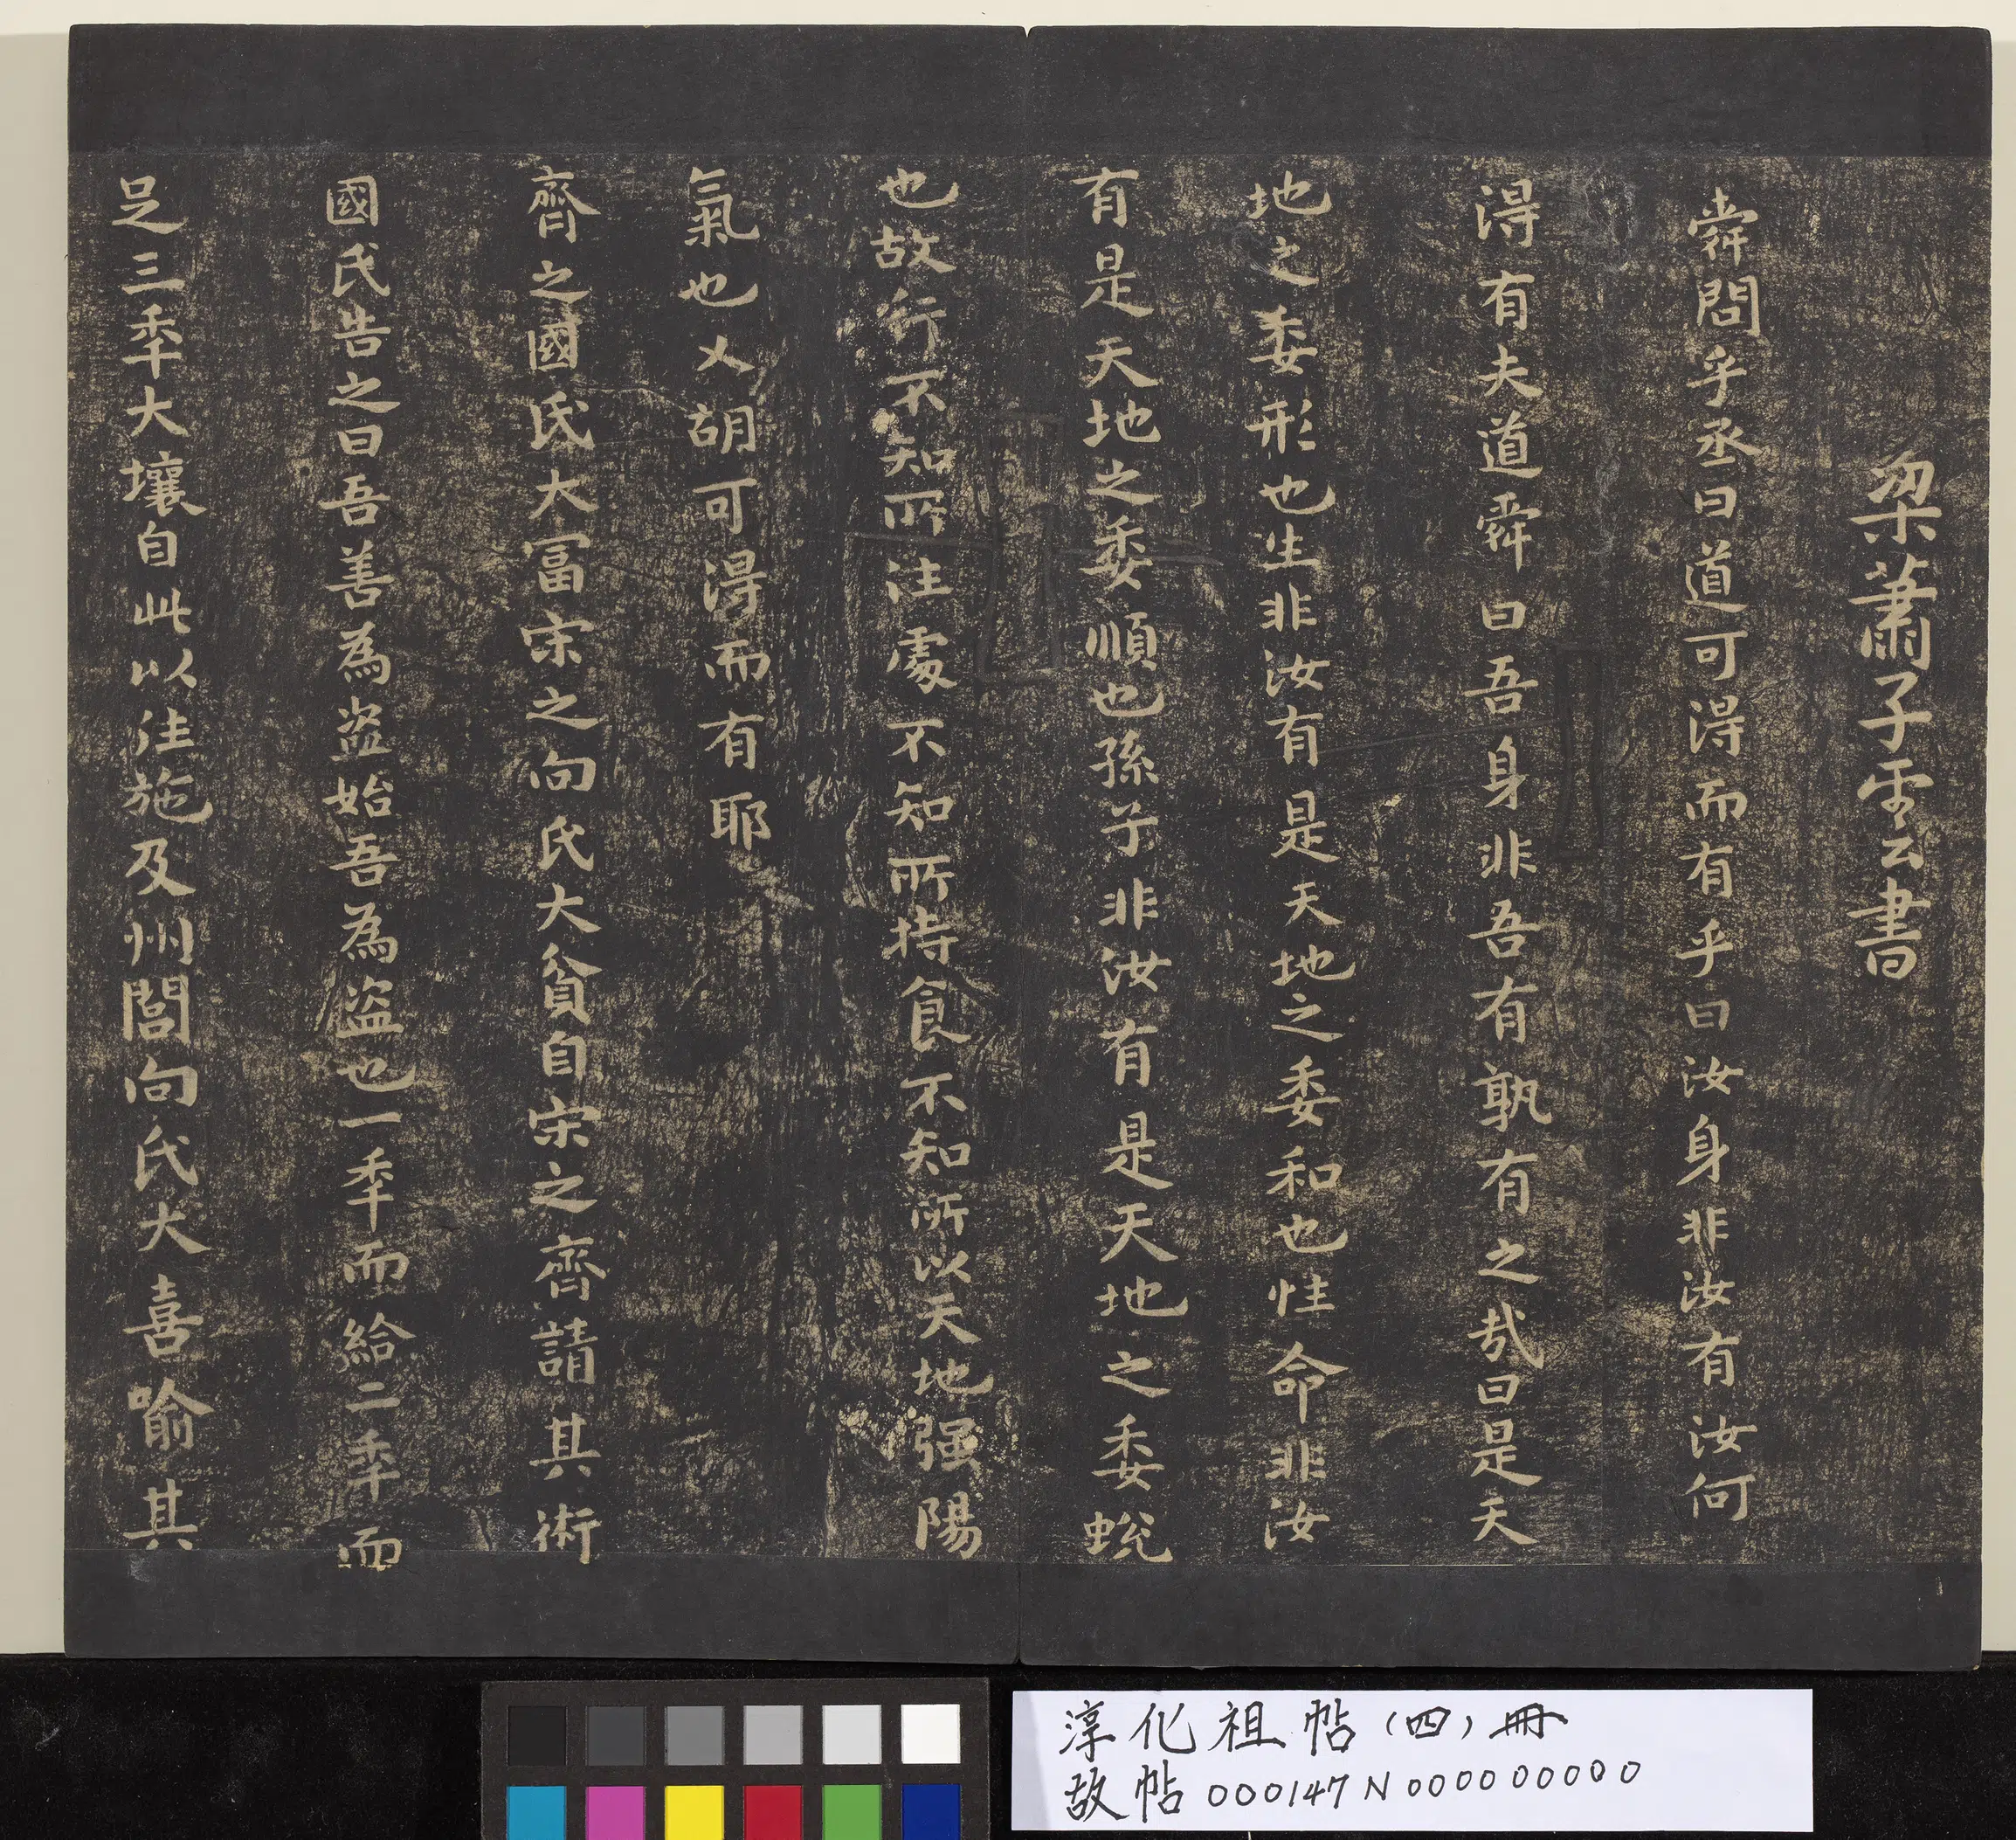 梁蕭子雲書
舜問乎丞曰道可得而有乎曰汝身非汝有汝何
得有夫道舜曰吾身非吾有孰有之哉曰是天
地之委形也生非汝有是天地之委和也性命非汝
有是天地之委順也孫子非汝有是天地之委蛻
也故行不知所往處不知所持食不知所以天地强陽
氣也又胡可得而有耶
齊之國氏大富宋之向氏大貧自宋之齊請其術
國氏告之曰吾善為盜始吾為盜也一秊而給二秊而
足三秊大壤自此以往施及州閭向氏大喜喻其
淳化祖帖(四)冊
故帖000147N000000000